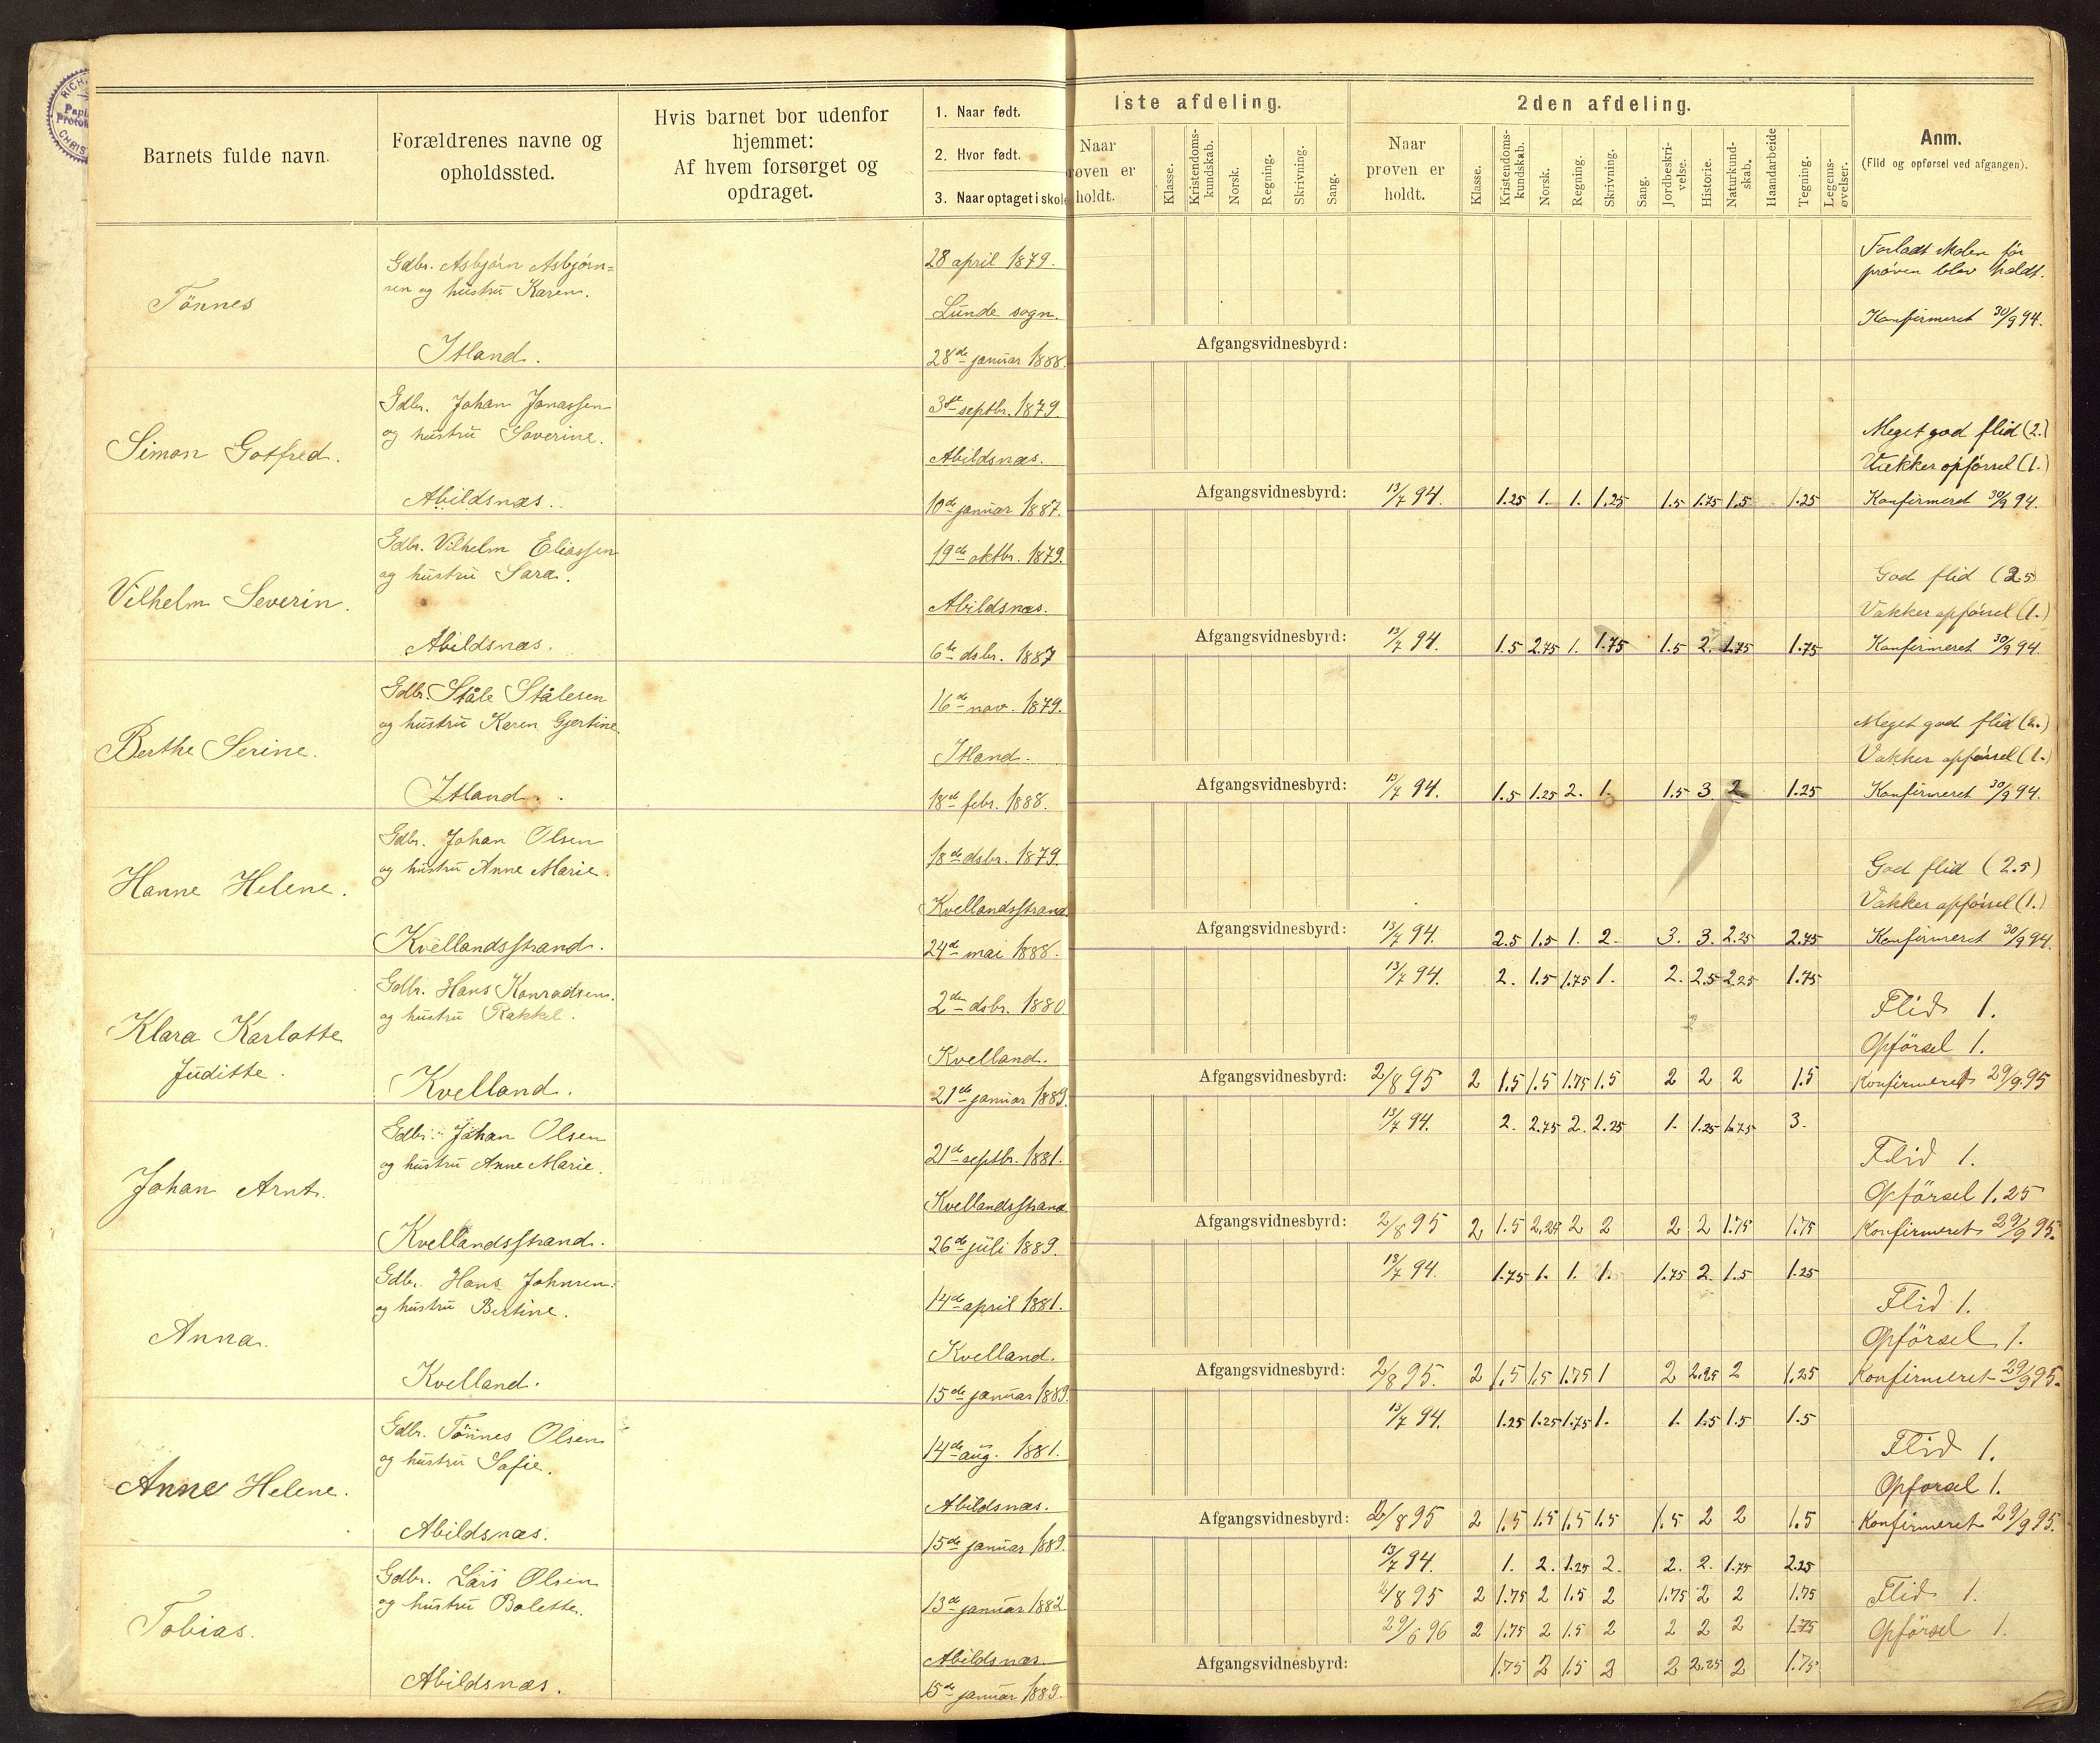 Barnets fulde navn.
Forældrenes navne og
opholdssted.
Hvis barnet bor udenfor
hjemmet:
Af hvem forsørget og
opdraget.
1. Naar født.
2. Hvor født.
3. Naar optaget i skole
1ste afdeling.
Naar
prøven er
holdt.
Klasse.
Kristendoms-
kundskab.
Norsk.
Regning.
Skrivning.
Sang.
2den afdeling.
Naar
prøven er
holdt.
Klasse.
Kristendoms-
kundskab.
Norsk.
Regning.
Skrivning.
Sang.
Jordbeskri-
velse.
Historie.
Naturkund-
skab.
Haandarbeide
Tegning.
Legems-
øvelser.
Anm.
(Flid og opførsel ved afgangen).
Tönnes
Gdbr. Asbjørn Asbjørn=
sen og hustru Karen.
Itland.
28 april 1879.
Lunde sogn.
28de januar 1888.
Forladt skolen før
prøven blev holdt.
Konfirmeret 30/9 94.
Afgangsvidnesbyrd:
Simon Gotfred.
Gdbr. Johan Jonassen
og hustru Severine.
Abildsnæs.
3de septbr. 1879.
Abildsnæs.
10de januar 1887.
Meget god flid (2.)
Vakker opførsel (1.)
Afgangsvidnesbyrd: 13/7 94. 1.25 1. 1. 1.25 1.5 1.75 1.5 1.25 Konfirmeret 30/9 94.
Vilhelm Severin.
Gdbr. Vilhelm Eliassen
og hustru Sara.
Abildsnæs.
19de oktbr. 1879.
Abildsnæs.
6te dsbr. 1887
God flid (2.5
Vakker opførsel (1.)
Afgangsvidnesbyrd: 13/7 94. 1.5 2.75 1. 1.75 1.5 2. 1.75 1.75 Konfirmeret 30/9 94.
Berthe Serine.
Gdbr. Ståle Stålesen
og hustru Karen Gjertine.
Itland.
16de nov. 1879.
Itland.
18de febr. 1888.
Meget god flid (2.)
Vakker opførsel (1.)
Afgangsvidnesbyrd: 13/7 94. 1.5 1.25 2. 1. 1.5 3. 2 1.25 Konfirmeret 30/9 94.
Hanne Helene.
Gdbr. Johan Olsen
og hustru Anne Marie.
Kvellandsstrand.
18de dsbr. 1879.
Kvellandsstrand
24de mai 1888.
God flid (2.5)
Vakker opførsel (1.)
Afgangsvidnesbyrd: 13/7 94. 2.5 1.5 1. 2. 3. 3. 2.25 2.75 Konfirmeret 30/9 94.
Klara Karlotte
Juditte.
Gdbr. Hans Konradsen.
og hustru Rakkel.
Kvelland.
2den dsbr. 1880.
Kvelland.
21de januar 1889.
13/7 94. 2. 1.5 1.75 1. 2. 2.5 2.25 1.75
Flid 1.
Opförsel 1.
Afgangsvidnesbyrd: 2/8 95 2 1.5 1.5 1.75 1.5 2 2 2 1.5 Konfirmeret 29/9.95
Johan Arnt.
Gdbr. Johan Olsen
og hustru Anne Marie.
Kvellandsstrand.
21de septbr. 1881.
Kvellandsstrand
26de juli 1889.
13/7 94. 2. 2.75 2. 2.25 1. 1.25 1.75 3.
Flid 1.
Opförsel 1.25
Afgangsvidnesbyrd: 2/8 95 2 1.5 2.25 2 2 2 2 1.75 1.75 Konfirmeret 29/9 95.
Anna.
Gdbr. Hans Johnsen.
og hustru Bertine.
Kvelland.
14de april 1881.
Kvelland.
15de januar 1889.
13/7 94. 1.75 1. 1. 1. 1.75 2. 1.5 1.25
Flid 1.
Opförsel 1.
Afgangsvidnesbyrd: 2/8 95. 2 1.5 1.5 1.75 1 2 2.25 2 1.25 Konfirmeret 29/9 95.
Anne Helene.
Gdbr. Tönnes Olsen
og hustru Sofie.
Abildsnæs.
14de aug. 1881.
Abildsnæs.
15de januar 1889.
13/7 94. 1.25 1.25 1.75 1. 1. 1.5 1.5 1.5
Flid 1.
Opforsel 1.
Afgangsvidnesbyrd: 2/8 95 2 1.5 1.5 1.5 1.5 1.5 2 2 1.5 Konfirmeret 29/9 95.
Tobias.
Gdbr. Lars Olsen
og hustru Bolette.
Abildsnæs.
13de januar 1882.
Abildsnæs.
15de januar 1889.
13/7 94. 1. 2. 1.25 2. 2. 2. 1.75 2.25
2/8 95 2 1.75 2 1.5 2 1.75 2 2 1.75 Flid 1.
29/6 96 2 1.75 2 1.5 2 2 2 2 1.75 Opförsel 1.
Afgangsvidnesbyrd: 1.75 2 1.5 2 2 2.25 2 1.75